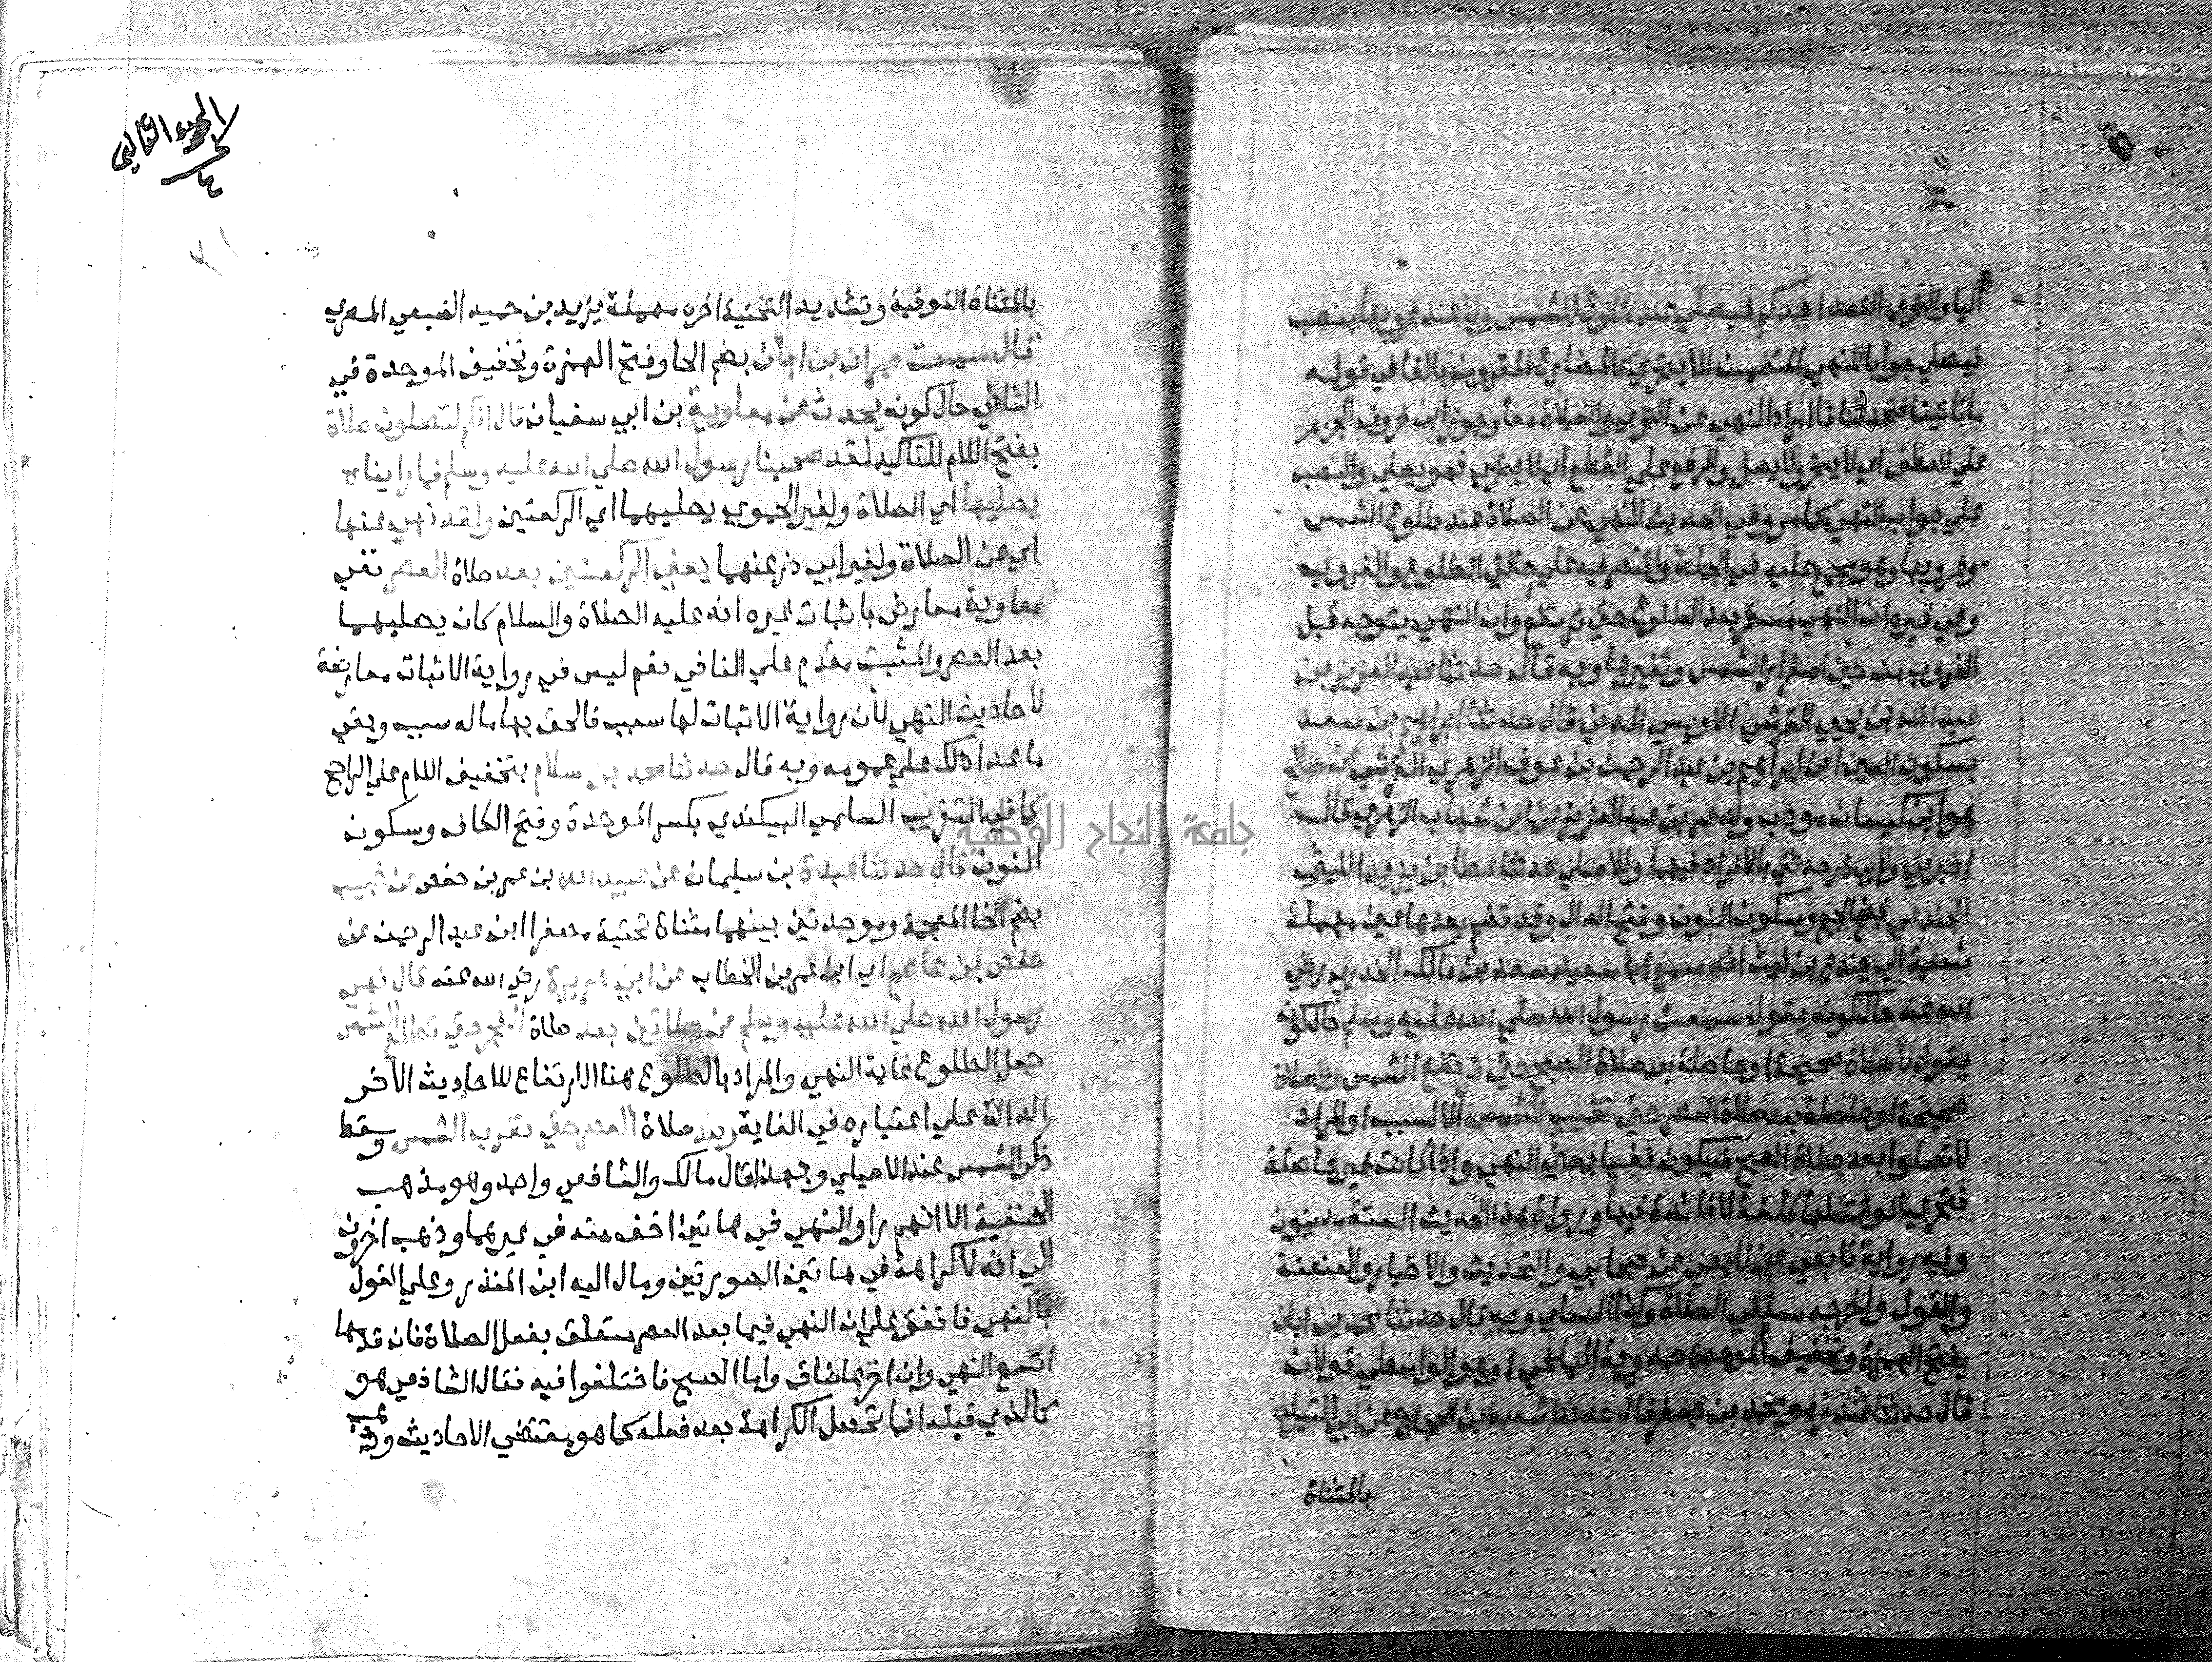 اليا والتحري القصد احدكم فيصلي عند طلوع الشمس ولا عند غروبها بنصب
فيصلي جوابا للنهي المتضمن للا يتحري كالمضارع المقرون بالفا في قوله
ما تاتينا فتحدثنا فالمراد النهي عن التحري والصلاة معا وجوز ابن خروف الجزم
علي العطف اي لا يتحر ولا يصل والرفع علي القطع اي لا يتحري فهو يصلي والنصب
علي جواب النهي كما مر وفي الحديث النهي عن الصلاة عند طلوع الشمس
وغروبها وهو مجمع عليه في الجملة واقتصر فيه علي حالتي الطلوع والغروب
وفي غيره ان النهي مستمر بعد الطلوع حتي ترتفع وان النهي يتوجه قبل
الغروب من حين اصفرار الشمس وتغيرها وبه قال حدثنا عبد العزيز بن
عبد الله بن يحيي القرشي الاويسي المدني قال حدثنا ابراهيم بن سعد
بسكون العين ابن ابراهيم بن عبد الرحمن بن عوف الزهري القرشي عن صالح
هو ابن كيسان مودب ولد عمر بن عبد العزيز عن ابن شهاب الزهري قال
اخبرني ولابي ذر حدثني بالافراد فيهما وللاصيلي حدثنا عطا بن يزيد الليثي
الجندعي بضم الجيم وسكون النون وفتح الدال وقد تضم بعدها عين مهملة
نسبة الي جندع بن ليث انه سمع ابا سعيد سعد بن مالك الخدري رضي
الله عنه حال كونه يقول سمعت رسول الله صلي الله عليه وسلم حال كونه
يقول لا صلاة صحيحة او حاصلة بعد صلاة الصبح حتي ترتفع الشمس ولا صلاة
صحيحة او حاصلة بعد صلاة العصر حتي تغيب الشمس الا لسبب او المراد
لا تصلوا بعد صلاة الصبح فيكون نفيا بمعني النهي واذا كانت غير حاصلة
فتحري الوقت لها كلفة لا فائدة فيها ورواة هذا الحديث الستة مدنيون
وفيه رواية تابعي عن تابعي عن صحابي والتحديث والاخبار والعنعنة
والقول واخرجه مسلم في الصلاة وكذا النساي وبه قال حدثنا محمد بن ابان
بفتح الهمزة وتخفيف الموحدة حمدوية البلخي او هو الواسطي قولان
قال حدثنا غندر هو محمد بن جعفر قال حدثنا شعبة بن الحجاج عن ابي التياح
بالمثناة
الجزء الثالث
بالمثناة الفوقية وتشديد التحتية اخره مهملة يزيد بن حميد الضبعي البصري
قال سمعت حمران بن ابان بضم الحا وفتح الهمزة وتخفيف الموحدة في
الثاني حال كونه يحدث عن معاوية بن ابي سفيان قال انكم لتصلون صلاة
بفتح اللام للتاكيد لقد صحبنا رسول الله صلي الله عليه وسلم فما رايناه
يصليها اي الصلاة ولغير الحموي يصليهما اي الركعتين ولقد نهي عنها
اي عن الصلاة ولغير ابي ذر عنهما يعني الركعتين بعد صلاة العصر نفي
معاوية معارض باثبات غيره انه عليه الصلاة والسلام كان يصليهما
بعد العصر والمثبت مقدم علي النافي نعم ليس في رواية الاثبات معارضة
لاحاديث النهي لأن رواية الاثبات لها سبب فالحق بها ما له سبب وبقي
ما عدا ذلك علي عمومه وبه قال حدثنا محمد بن سلام بتخفيف اللام علي الراجح
كما في التقريب السلمي البيكندي بكسر الموحدة وفتح الكاف وسكون
النون قال حدثنا عبدة بن سليمان عن عبيد الله بن عمر بن حفص عن خبيب
بضم الخا المعجمة وموحدتين بينهما مثناة تحتية مصغرا ابن عبد الرحمن عن
حفص بن عاصم اي ابن عمر بن الخطاب عن ابي هريرة رضي الله عنه قال نهي
رسول الله صلي الله عليه وسلم عن صلاتين بعد صلاة الفجر حتي تطلع الشمس
جعل الطلوع غاية النهي والمراد بالطلوع هنا الارتفاع للاحاديث الاخر
الدالة علي اعتباره في الغاية وبعد صلاة العصر حتي تغرب الشمس وسقط
ذكر الشمس عند الاصيلي وبهذا قال مالك والشافعي واحمد وهو مذهب
الحنفية الا انهم راو النهي في هاتين اخف منه في غيرهما وذهب اخرون
الي انه لا كراهة في هاتين الصورتين ومال اليه ابن المنذر وعلي القول
بالنهي فاتفق علي ان النهي فيما بعد العصر متعلق بفعل الصلاة فان قدمها
اتسع النهي وان اخرها ضاق واما الصبح فاختلفوا فيه فقال الشافعي هو
كالذي قبله انما تحصل الكراهة بعد فعله كما هو مقتضي الاحاديث وذهب
جامعة النجاح الوطنية